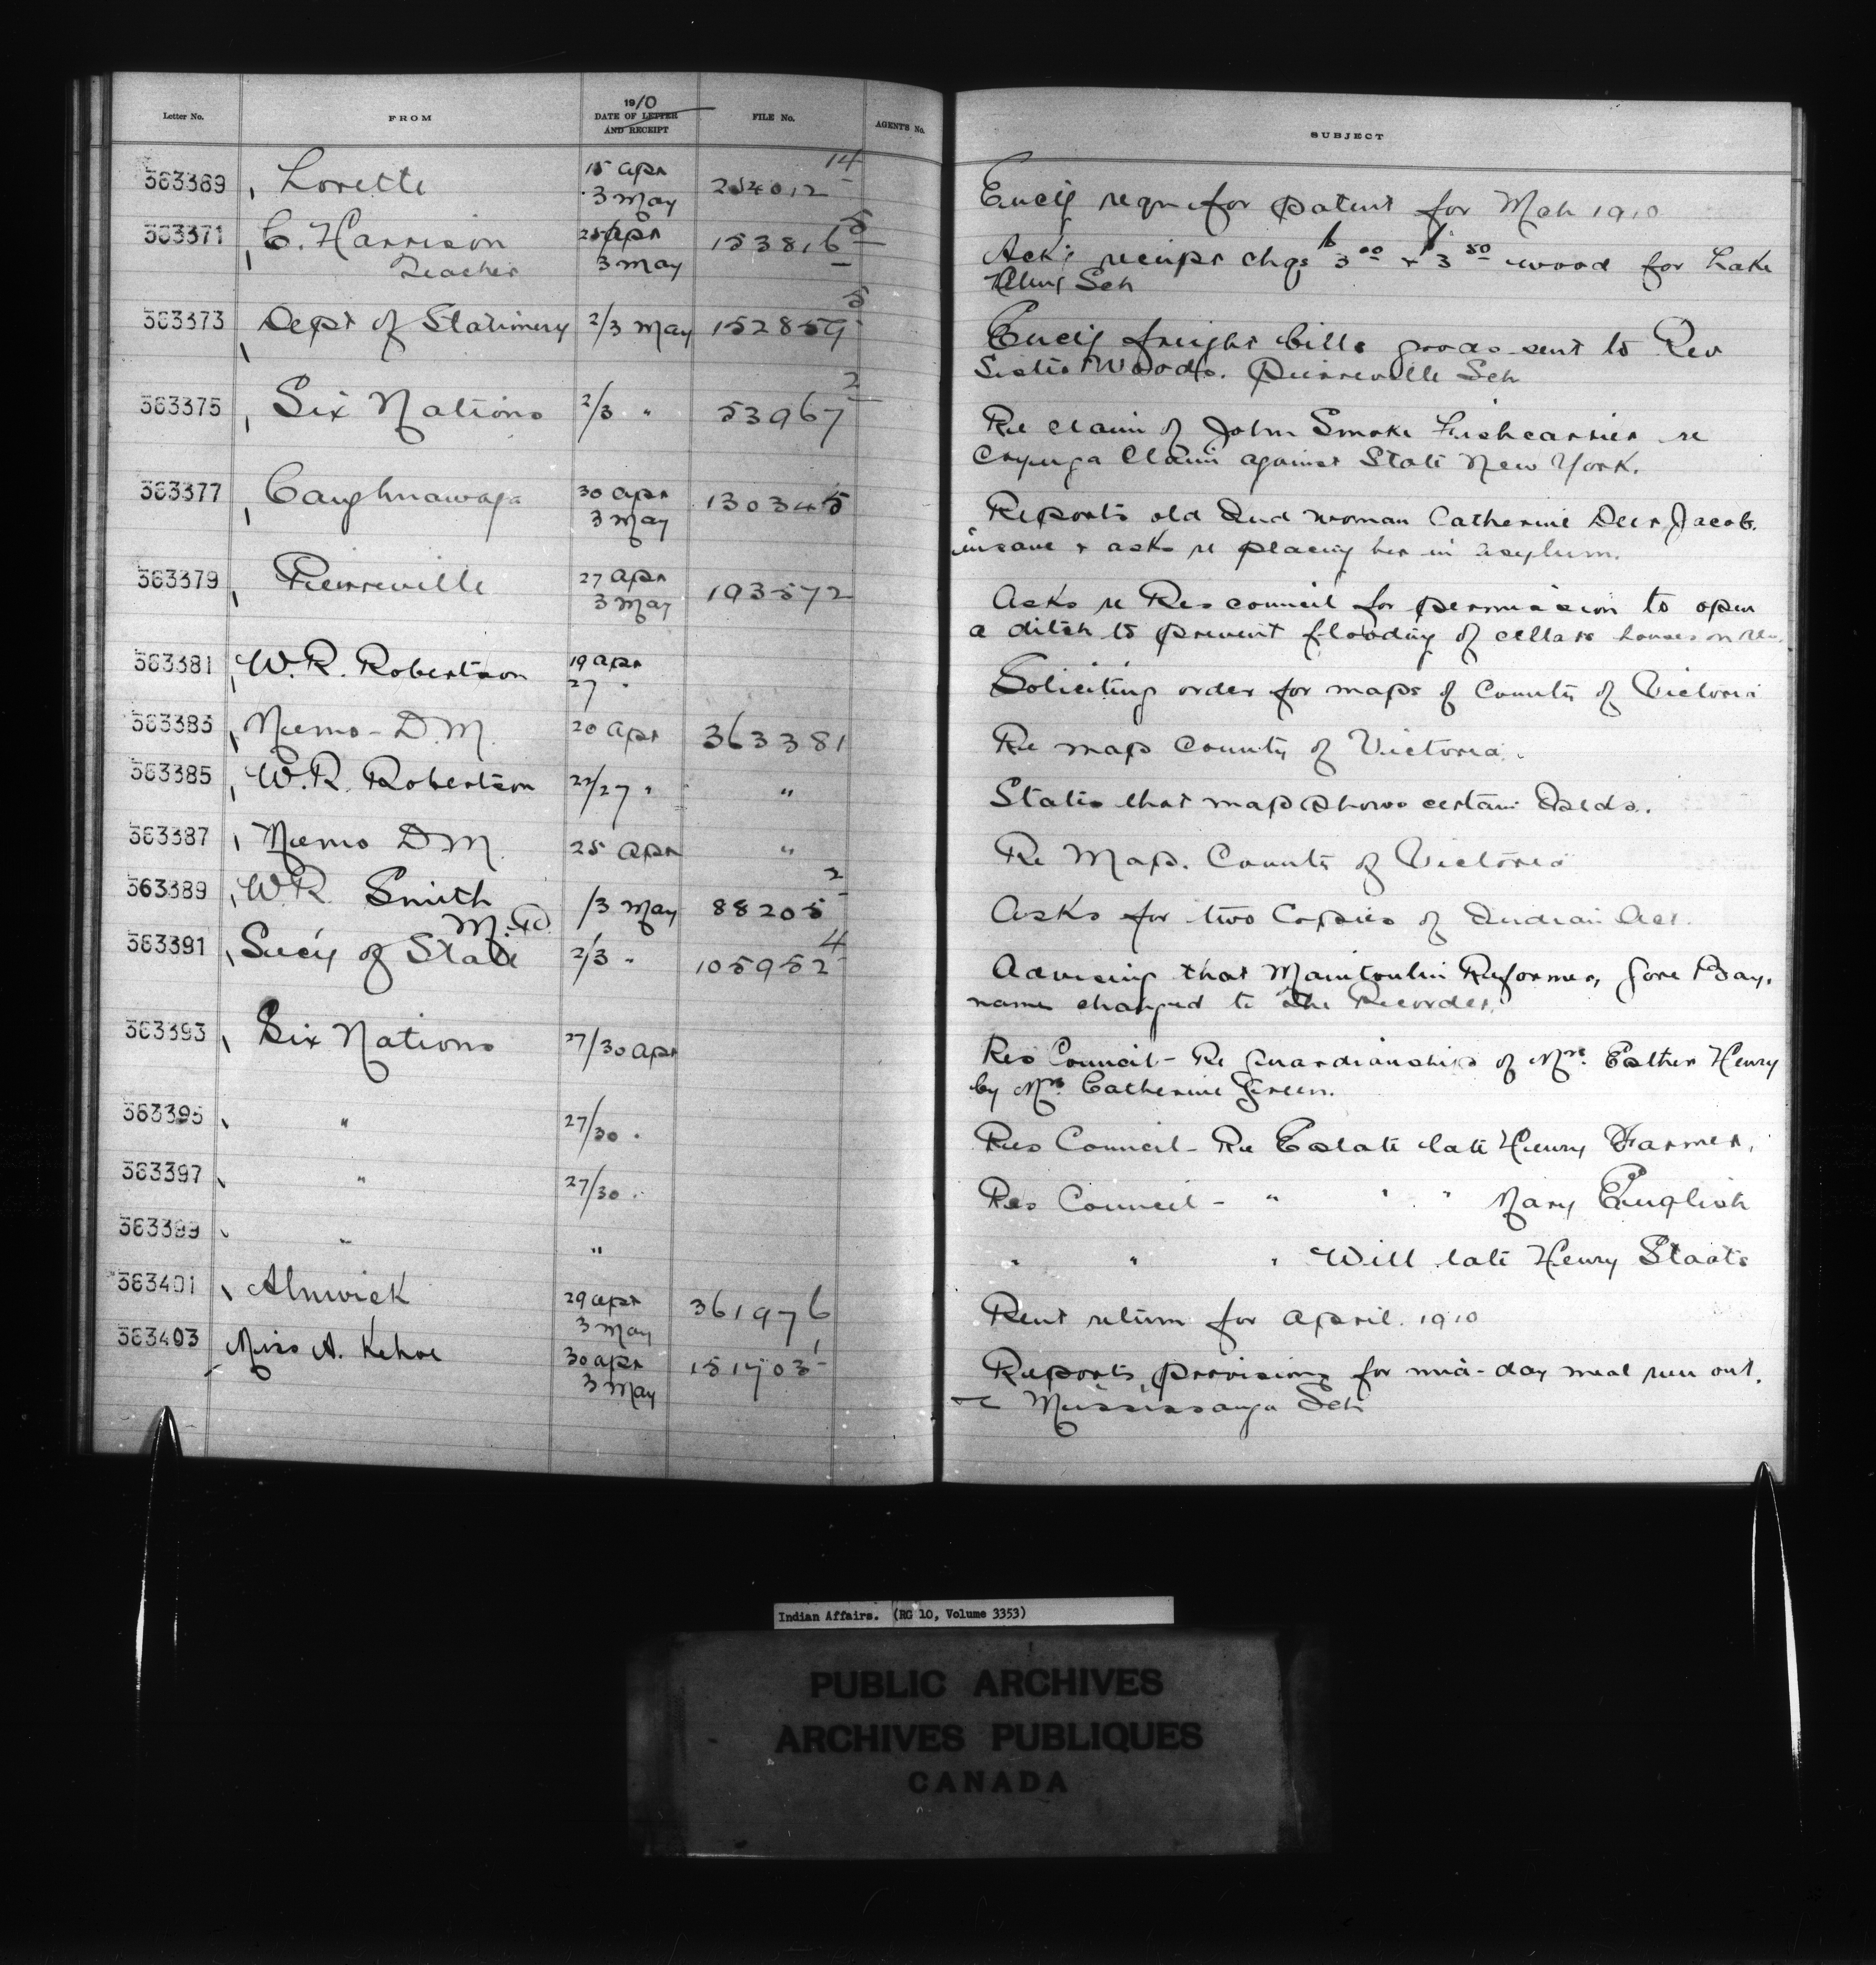 Letter No. FROM 1910 DATE OF LETTER AND RECEIPT FILE No. AGENT'S No. SUBJECT
363369 Lorette 15 Apr 3 May 254012-14 Encl'g reqn for patent for Mch 1910
363371 C. Harrison 25 Apr 153816-5 Ack'g receipt chqs 3.00 & 3.50 wood for Lake
Teacher 3 May Sch
363373 Dept of Stationery 2/3 May 152859-5 Encl'g freight bills goods sent to Rev
Sister Woods. Pierreville Sch
363375 Six Nations 2/3 " 53967-2 Re claim of John Smoke Fishcarrier re
Cayuga Claim against State New York.
363377 Caughnawaga 30 Apr 130345 Reports old Ind woman Catherine Deer, Jacob.
3 May insane & asks re placing her in asylum.
363379 Pierreville 27 Apr 193572 Asks re Res council for permission to open
3 May a ditch to prevent flooding of cellars houses on res.
363381 W. R. Robertson 19 Apr Soliciting order for maps of County of Victoria
27 "
363383 Memo - D. M. 20 Apr 363381 Re map County of Victoria.
363385 W. R. Robertson 22/27 " " States that map shows certain Islds.
363387 Memo D M 25 Apr " Re Map. County of Victoria
363389 W. R. Smith /3 May 88205-2 Asks for two Copies of Indian Act.
M. D.
363391 Sec'y of State 2/3 " 105952-4 Advising that Manitoulin Reformer, Gore Bay,
name changed to The Recorder.
363393 Six Nations 27/30 Apr Res Council - Re Guardianship of Mrs. Esther Henry
by Mrs. Catherine Green.
363395 " 27/30 " Res Council - Re Estate late Henry Farmer.
363397 " 27/30 " Res Council - " " " Mary English
363399 " " " " " Will late Henry Staats
363401 Alnwick 29 Apr 361976 Rent return for April. 1910
3 May
363403 Miss A. Kehoe 30 Apr 151703-1 Reports provisions for mid-day meal run out.
3 May Mississauga Sch
Indian Affairs. (RG 10, Volume 3353)
PUBLIC ARCHIVES
ARCHIVES PUBLIQUES
CANADA